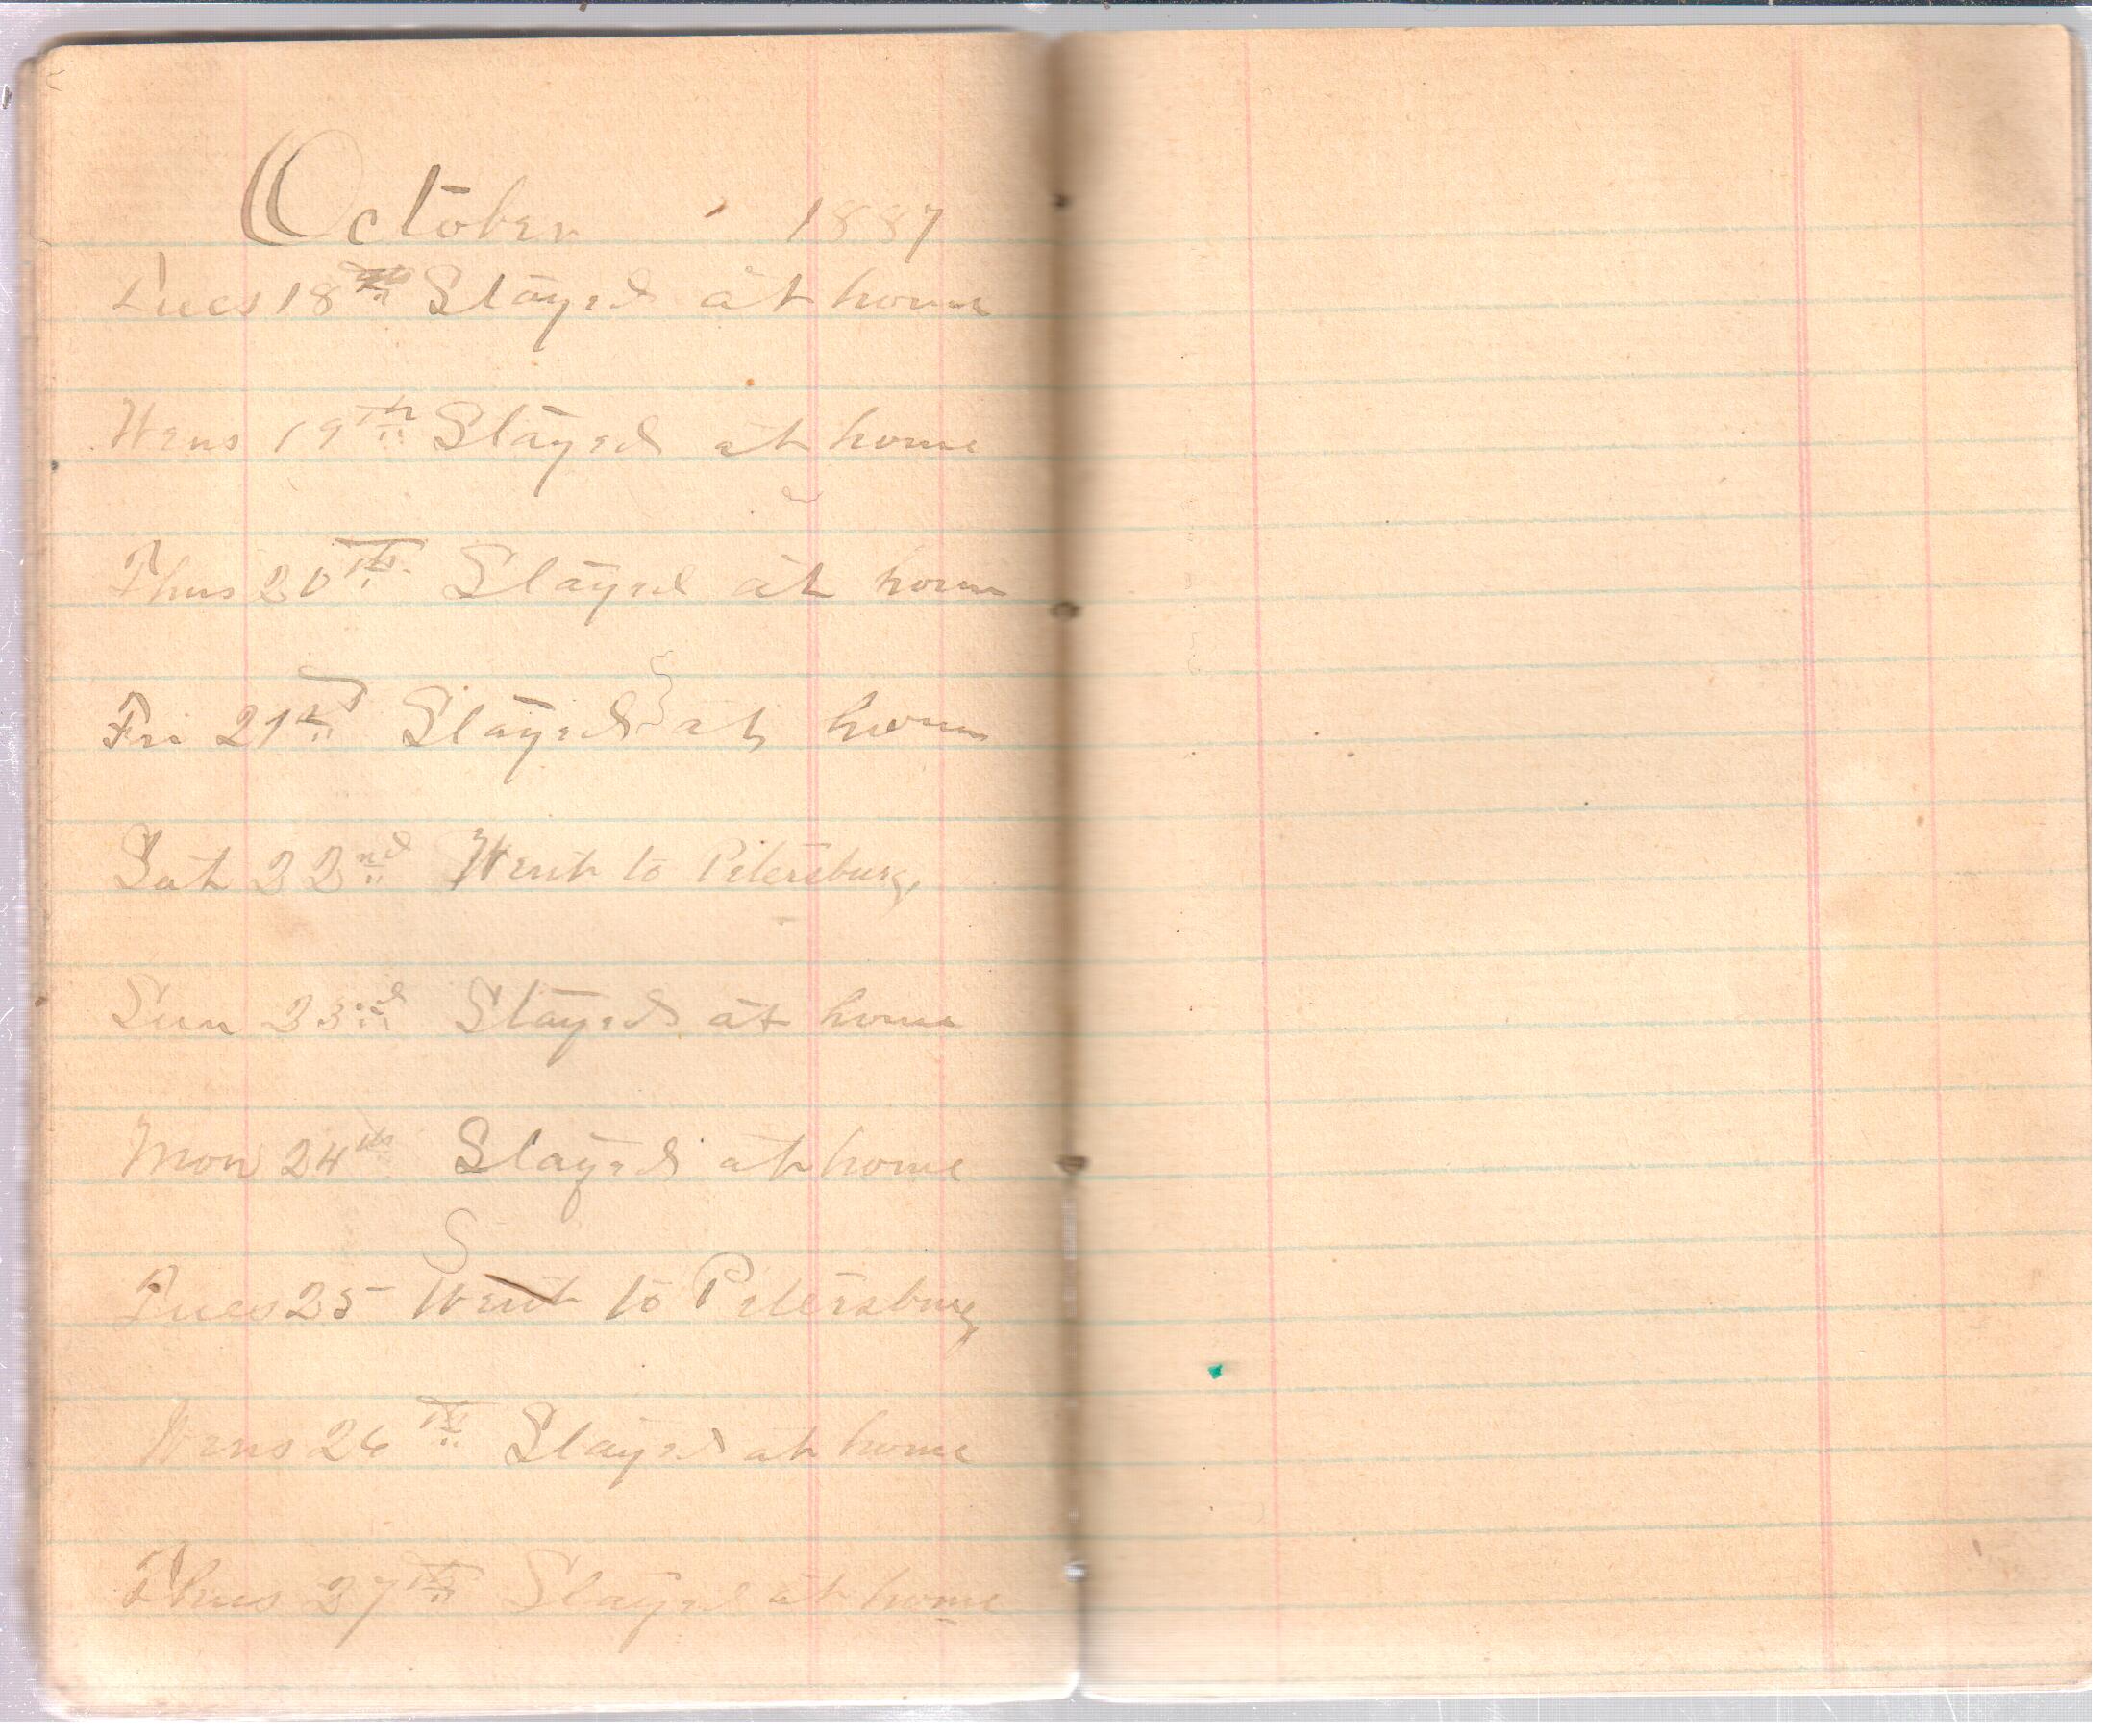 October 1887
Tues 18th Stayed at home
Wens 19th Stayed at home
Thus 20th Stayed at home
Fri 21st Stayed at home
Sat 22nd Went to Petersburg
Sun 23rd Stayed at home
Mon 24th Stayed at home
Tues 25 Went to Petersburg
Wens 26th Stayed at home
Thus 27th Stayed at home